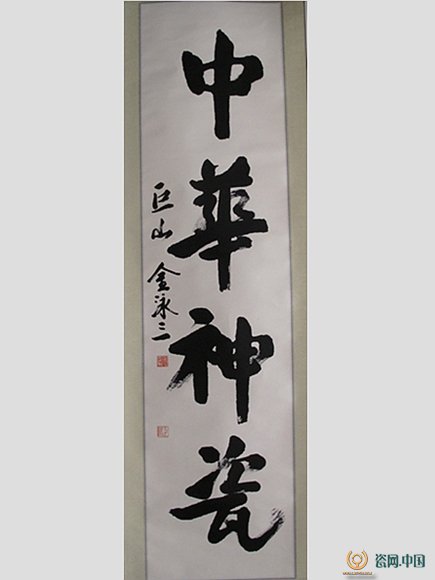 中華神瓷
巨山 金泳三
瓷网.中国